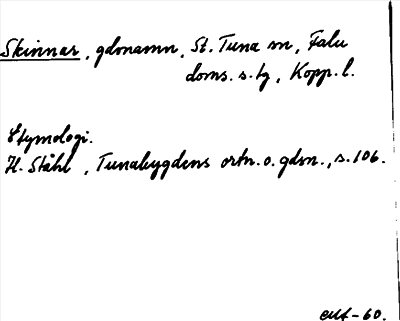 Skinnar, gdsnamn, St. Tuna sn, Falu
doms. s. tg, Kopp. l.
Etymologi.
H. Ståhl, Tunabygdens ortn. o. gdsn., s. 106.
-60.